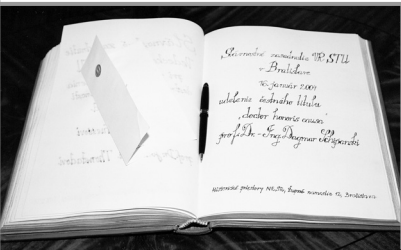 Slávnostné zasadnutie VR STU
v Bratislave
január 2009
udelenie čestného titulu
„doctor honoris causa"
prof. Dr.-Ing. Dagmar
Historické priestory NR SR, Župné námestie 12, Bratislava